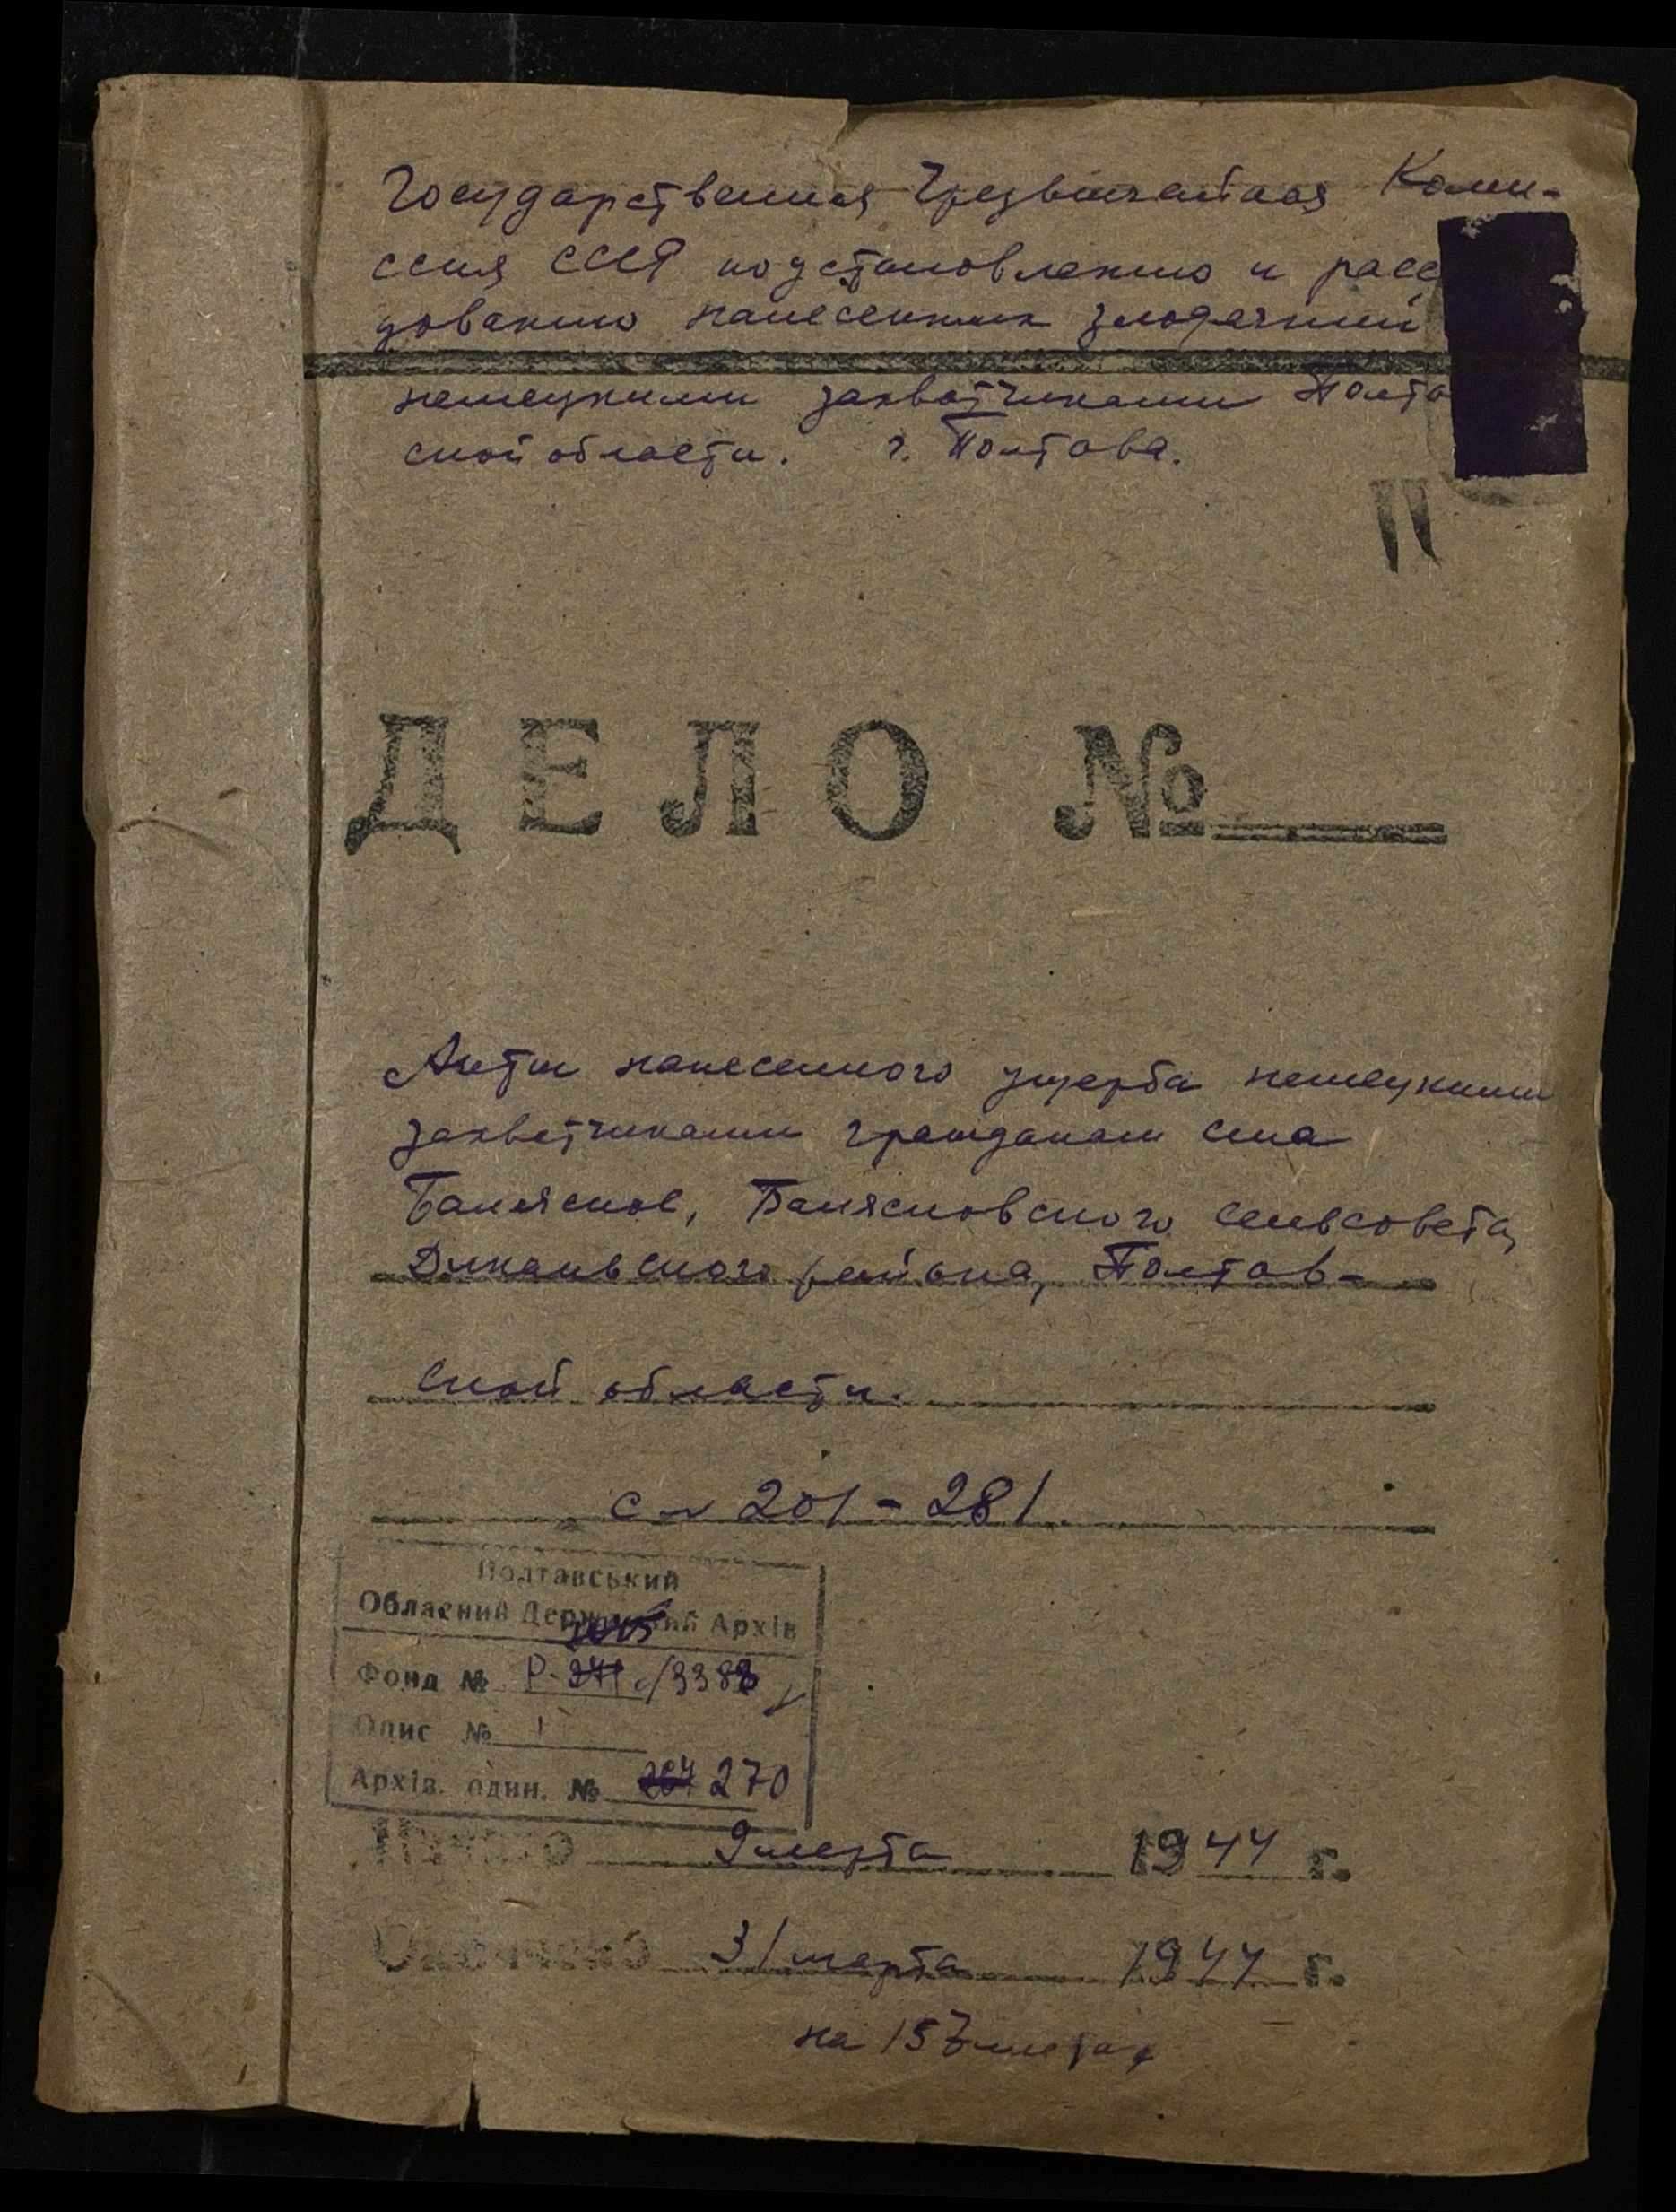 Государственная Чрезвычайная Коми-
ссия СССР по установлению и расс
дованию нанесенных злодеяний
немецкими захватчиками Полта
ской области. г. Полтава.
ДЕЛО №
Акты нанесенного ущерба немецкими
захватчиками гражданам села
Балясное, Балясновского сельсовета,
Диканьского района, Полтав-
ской области.
с № 201-281
Полтавський
Обласний Державний Архів
Фонд № Р- /3388
Опис № 1
Архів. один. № 270
Начато 9 марта 1944 г.
Окончено 31 марта 1944 г.
на 157 листах